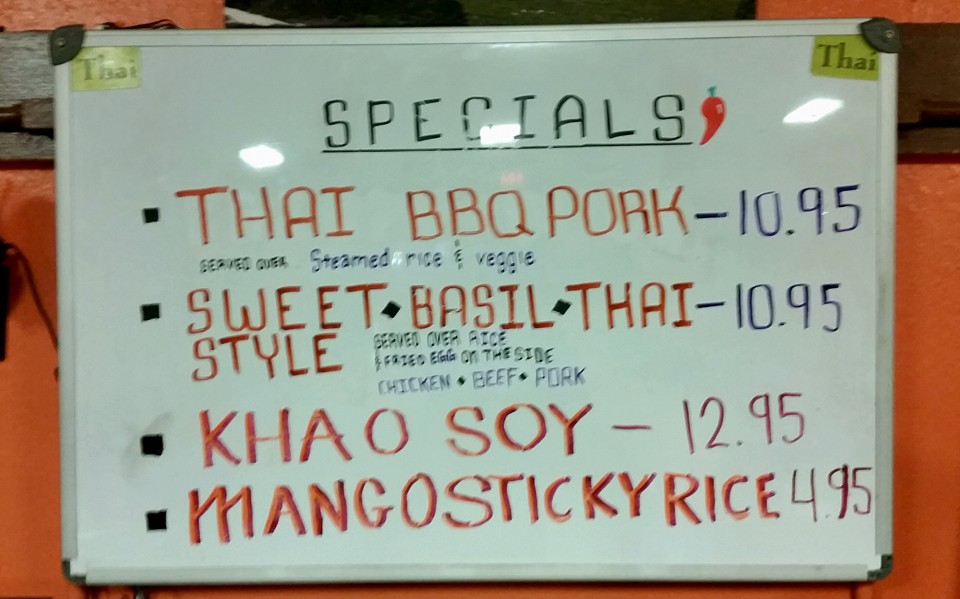 Thai
Thai
SPECIALS
THAI BBQ PORK - 10.95
SERVED OVER Steamed rice & veggie
SWEET • BASIL • THAI - 10.95
STYLE
SERVED OVER RICE
& FRIED EGG ON THE SIDE
CHICKEN • BEEF • PORK
KHAO SOY - 12.95
MANGO STICKY RICE 4.95